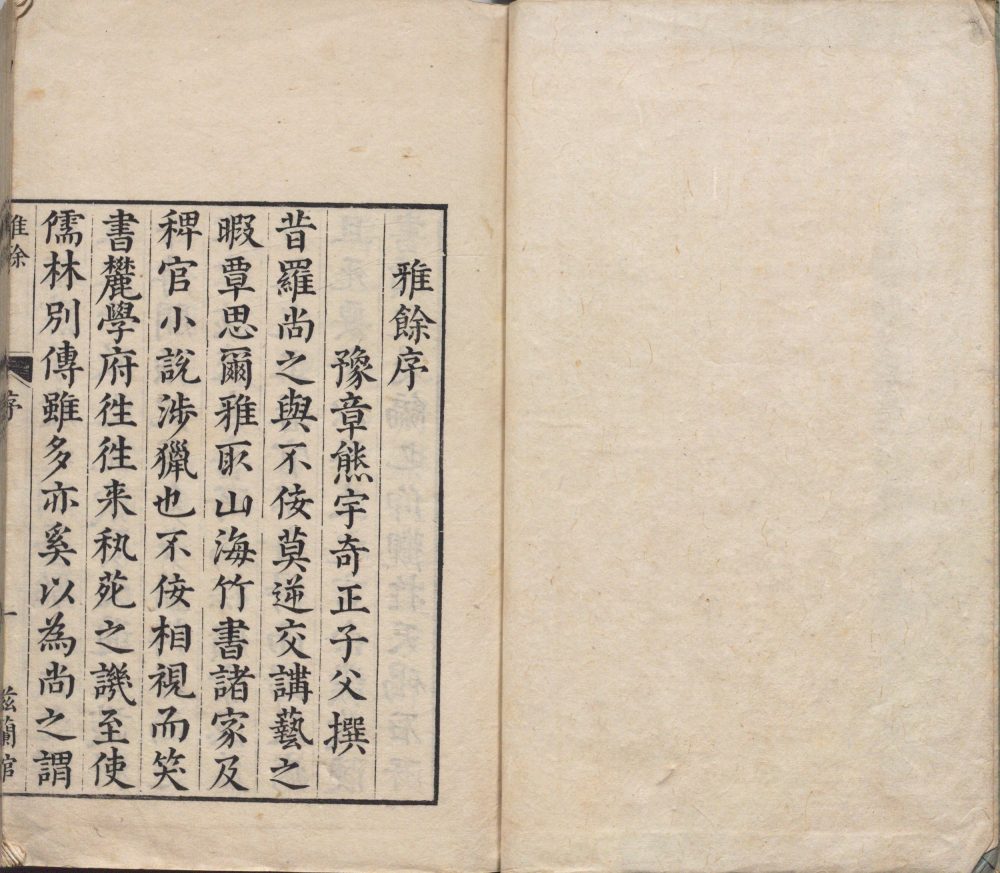 雅餘序
豫章熊宇奇正子父撰
昔羅尚之與不佞莫逆交講藝之
暇覃思爾雅取山海竹書諸家及
稗官小說涉獵也不佞相視而笑
書麓學府徃徃来秇苑之譏至使
儒林別傳雖多亦奚以為尚之謂
雅餘
序
一
茲蘭館